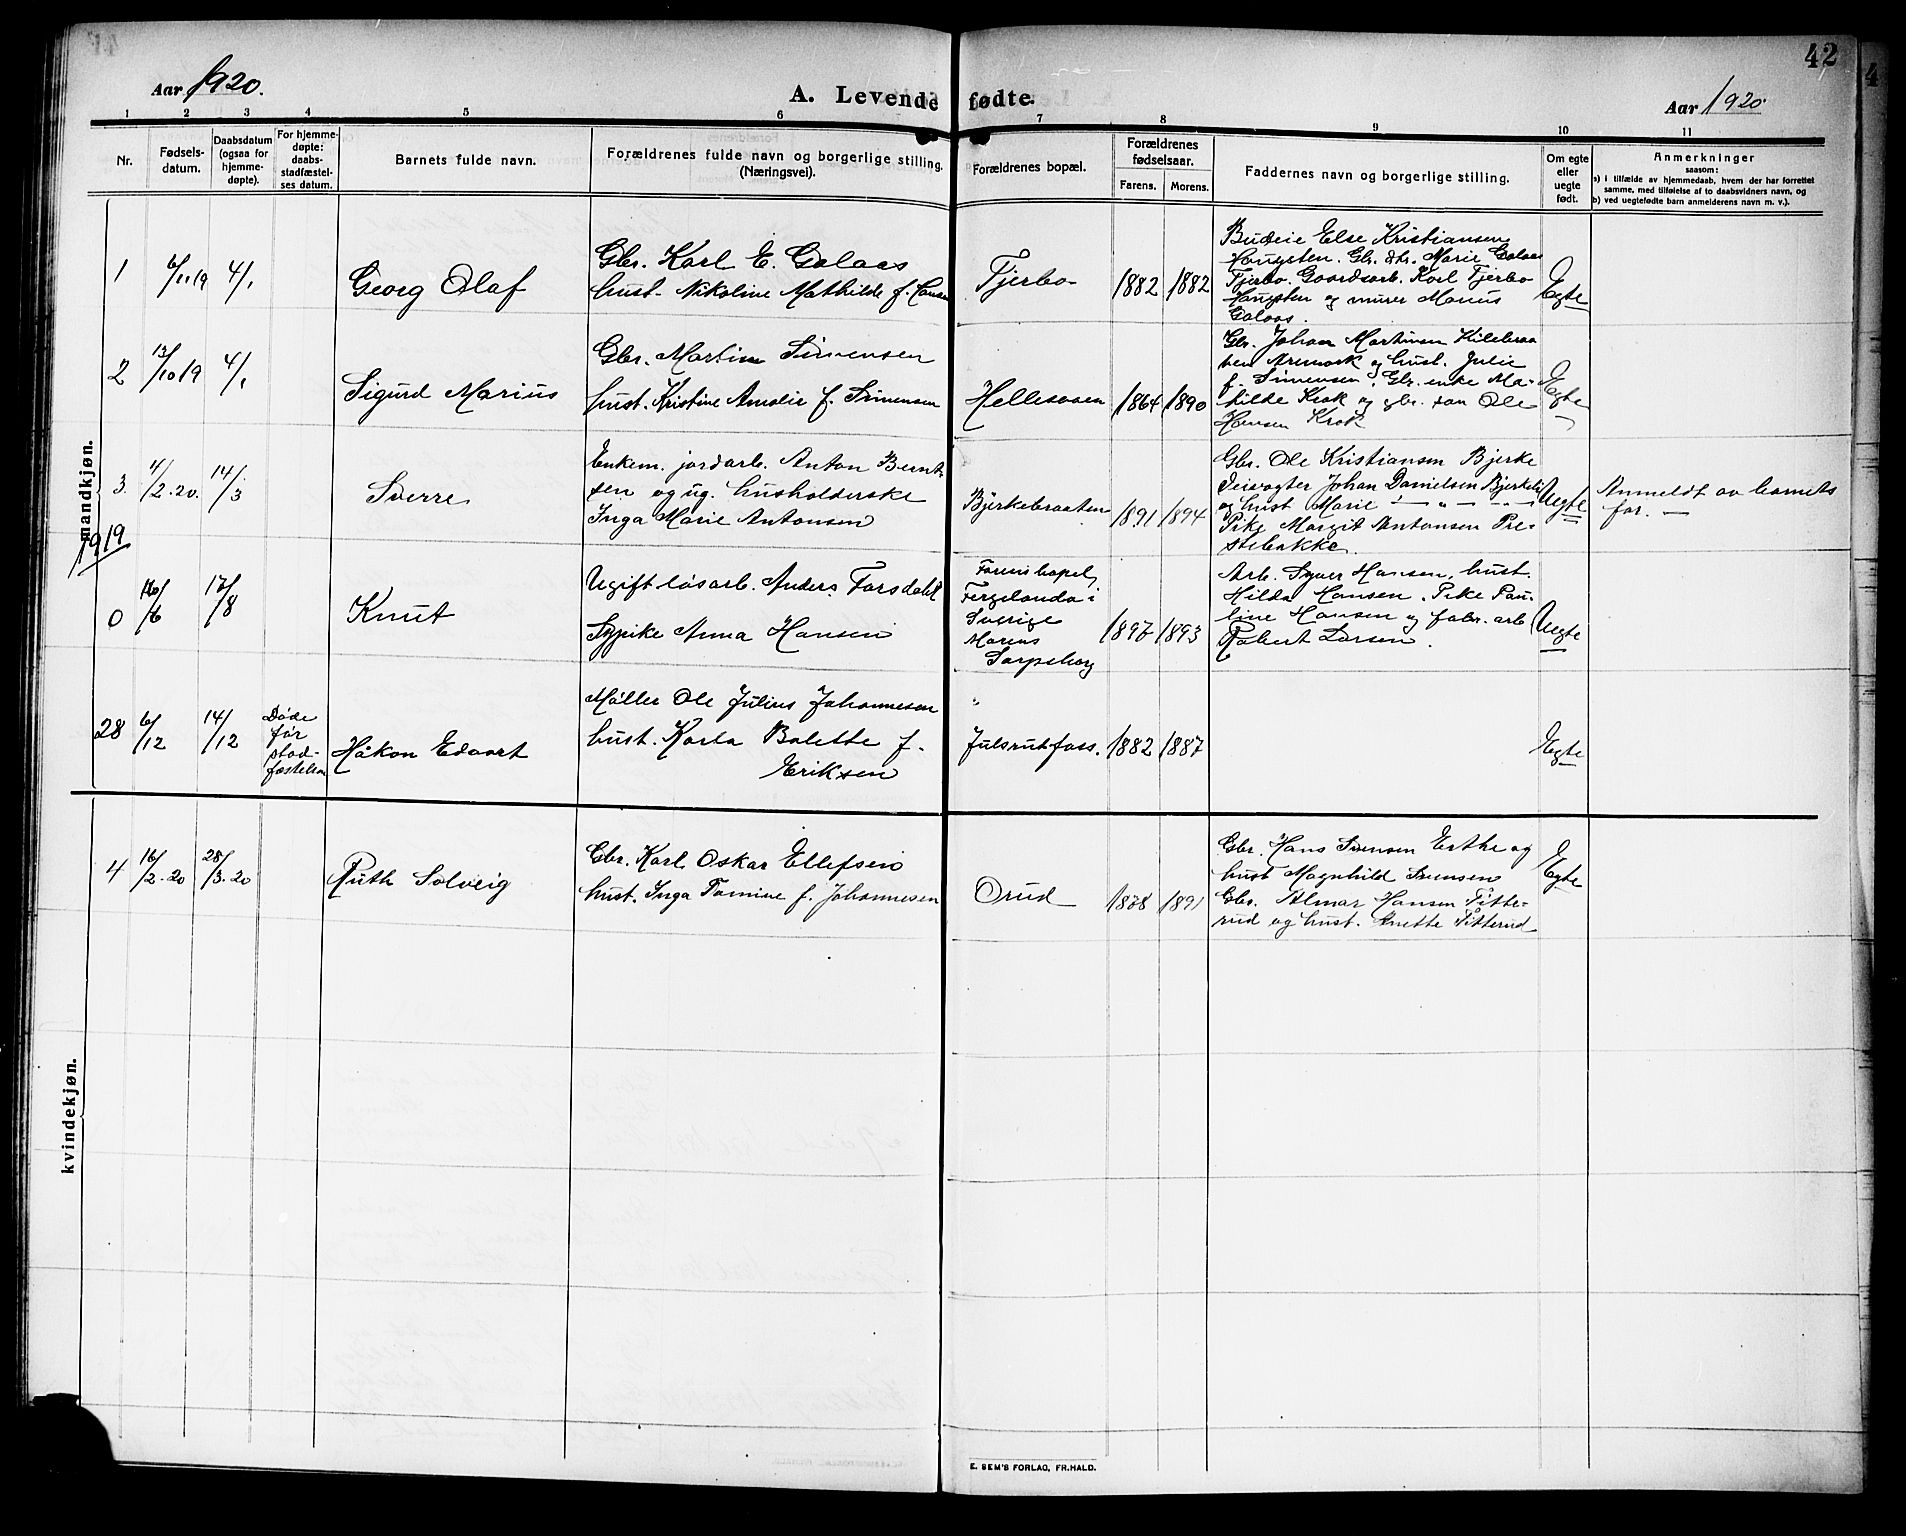 42
Aar 1920.
A. Levende fødte.
Aar 1920.
1 2 3 4 5 6 7 8 9 10 11
Nr.
Fødsels-
datum.
Daabsdatum
(ogsaa for
hjemme-
døpte).
For hjemme-
døpte:
daabs-
stadfæstel-
ses datum.
Barnets fulde navn.
Forældrenes fulde navn og borgerlige stilling.
(Næringsvei).
Forældrenes bopæl.
Forældrenes
fødselsaar.
Farens. Morens.
Faddernes navn og borgerlige stilling.
Om egte
eller
uegte
født.
Anmerkninger
saasom:
a) i tilfælde av hjemmedaab, hvem der har forrettet
samme, med tilføielse af to daabsvidners navn, og
b) ved uegtefødte barn anmelderens navn m. v.).
mandkjøn.
1
6/11 19
4/1
Georg Olaf
Gbr. Karl E. Golaas
hust. Nikoline Mathilde f. Hansen
Tjerbo
1882 1882
Budeie Else Kristiansen
Haugsten. Gbr. dtr. Marie Golaas
Tjerbo. Gaardsarb. Karl Tjerbo
Haugsten og murer Marius
Golaas.
Egte
2
13/10 19
4/1
Sigurd Marius
Gbr. Martin Simensen
hust. Kristine Amalie f. Simensen
Hellesaaen
1864 1890
Gbr. Johan Martinsen
Aremark og hust. Julie
f. Simensen, Gbr. enke Ma-
hilde Krok og gbr. søn Ole
Hansen Krok
Egte
3
4/2.20.
14/3
Sverre
Enkem. jordarb. Anton Bernt-
sen og ug. husholderske
Inga Marie Antonsen
Bjerkebraaten
1891 1894
Gbr. Ole Kristiansen Bjerke
Johan Danielsen Bjerkeli
og hust Marie — „ — „ —
Pike Margit Antonsen Pre-
stebakke.
Uegte
Anmeldt av barnets
far. —
1919
0
16/6
17/8
Knut
Ugift løsarb. Anders Forsdahl
Sypike Anna Hansen
Farens bopel,
Fergelanda i
Sverige
Morens
Sarpsborg
1897 1893
Arb. Syver Hansen, hust.
Hilda Hansen, Pike Pau-
line Hansen og fabr. arb
Robert Larsen.
Uegte
28
6/12
14/12
Døde
før
stad-
fæstelsen
Håkon Edvart
Møller Ole Julius Johannesen
hust. Karla Bolette f.
Eriksen
„
Julsrutfoss.
1882 1887
Egte
kvindekjøn.
4
16/2.20
28/3.20
Ruth Solveig
Gbr. Karl Oskar Ellefsen
hust. Inga Tomine f. Johannesen
Orud
1878 1891
Gbr. Hans Svensen Erthe og
hust Magnhild Svensen
Gbr. Almar Hansen Titte-
rud og hust. Anette Titterud
Egte
E. SEM'S FORLAG, FR.HALD.